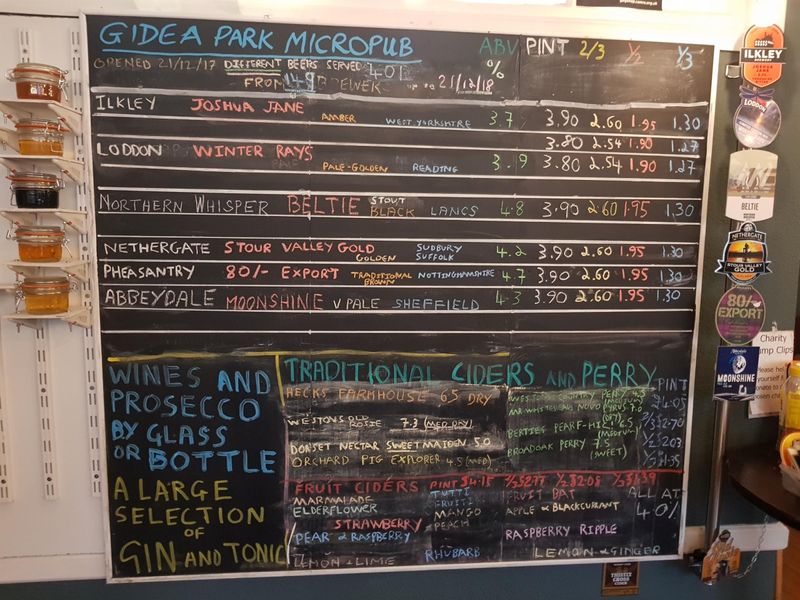 GIDEA PARK MICROPUB ABV PINT 2/3 1/2 1/3
OPENED 21/12/17 DIFFERENT BEERS SERVED 401 %
FROM 149 21/12/18
ILKLEY JOSHUA JANE AMBER WEST YORKSHIRE 3.7 3.90 2.60 1.95 1.30
3.80 2.54 1.90 1.27
LODDON WINTER RAYS PALE-GOLDEN READING 3.9 3.80 2.54 1.90 1.27
NORTHERN WHISPER BELTIE STOUT BLACK LANCS 4.8 3.90 2.60 1.95 1.30
NETHERGATE STOUR VALLEY GOLD GOLDEN SUDBURY SUFFOLK 4.2 3.90 2.60 1.95 1.30
PHEASANTRY 80/- EXPORT TRADITIONAL BROWN NOTTINGHAMSHIRE 4.7 3.90 2.60 1.95 1.30
ABBEYDALE MOONSHINE V PALE SHEFFIELD 4.3 3.90 2.60 1.95 1.30
WINES AND
PROSECCO
BY GLASS
OR BOTTLE
A LARGE
SELECTION
OF
GIN AND TONIC
TRADITIONAL CIDERS AND PERRY
HECKS FARMHOUSE 6.5 DRY
WESTONS OLD ROSIE 7.3 (MED DRY)
DORSET NECTAR SWEET MAIDEN 5.0
ORCHARD PIG EXPLORER 4.5 (MED)
COUNTRY PERRY 4.5
(MEDIUM)
BROADOAK PERRY 7.5
(SWEET)
PINT
£4.05
2/3 £2.70
1/2 £2.03
1/3 £1.35
FRUIT CIDERS PINT £4.15 2/3 £2.77 1/2 £2.08 1/3 £1.39
MARMALADE TUTTI FRUITI FRUIT BAT ALL AT
ELDERFLOWER MANGO APPLE & BLACKCURRANT 4.0%
STRAWBERRY PEACH
PEAR & RASPBERRY RASPBERRY RIPPLE
LEMON & LIME RHUBARB LEMON & GINGER
ILKLEY
JOSHUA JANE
LODDON
BELTIE
NETHERGATE
STOUR VALLEY GOLD
80/-
EXPORT
MOONSHINE
Charity
Pump Clips
THISTLY CROSS